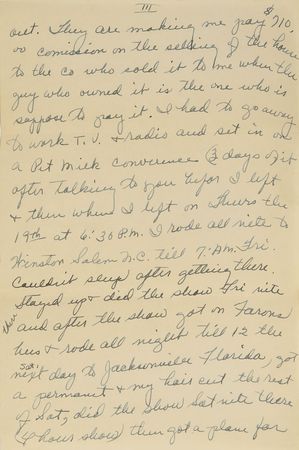 III
out. They are making me pay $710.
00 comission on the selling of the house
to the co who sold it to me when the
guy who owned it is the one who is
soppose to pay it. I had to go away
to work T.V. & radio and sit in on
a Pet Milk convernce (3 days of it
after talking to you befor I left
& then when I left on Thurs the
19th at 6:30 P.M. I rode all nite to
Winston Salem N.C. till 7: A.M. Fri.
Couldn't sleep after getting there.
Stayed up & did the show Fri nite
and after the show got on
bus & rode all night till 12 the
next day Sat. to Jacksonville Florida, got
a permanit & my hair cut the rest
of Sat, did the show Sat nite there
(4 hour show) then got a plane for